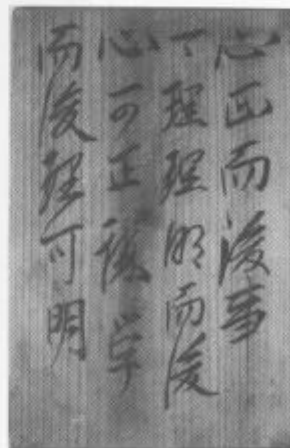 心正而後事
可理理明而後
心可正講学
而後理可明